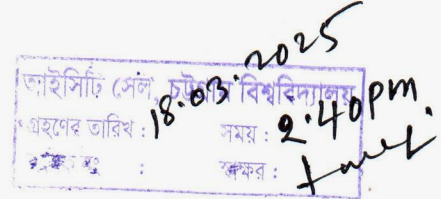 আইসিটি সেল, চট্টগ্রাম বিশ্ববিদ্যালয়
গ্রহণের তারিখ : 18.03.2025 সময় : 2.40pm
: স্বাক্ষর :